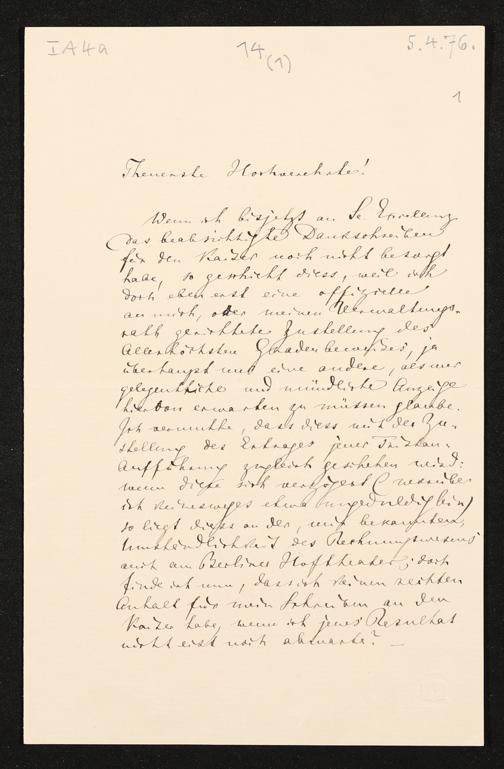 I A 4 a
14
(1)
5.4.76.
1
Theuerste Hochverehrte!
Wenn ich bisjetzt an Se. Excellenz
das beabsichtigte Dankschreiben
für den Kaiser noch nicht besorgt
habe, so geschieht diess, weil ich
doch eben erst eine offizielle
an mich, oder meinen Verwaltungs-
rath gerichtete Zustellung des
Allerhöchsten Gnadenbeweises, ja
überhaupt nur eine andere, als nur
gelegentliche und mündliche Anzeige
hiervon erwarten zu müssen glaube.
Ich vermuthe, dass diess mit der Zu-
stellung des Ertrages jener Tristan-
Aufführung zugleich geschehen wird:
wenn diese sich verzögert (worüber
ich keinesweges etwa ungeduldig bin)
so liegt dieses an der, mir bekannten,
Umständlichkeit des Rechnungswesens
auch am Berliner Hoftheater; doch
finde ich nun, dass ich keinen rechten
Anhalt für mein Schreiben an den
Kaiser habe, wenn ich jenes Resultat
nicht erst noch abwarte? —